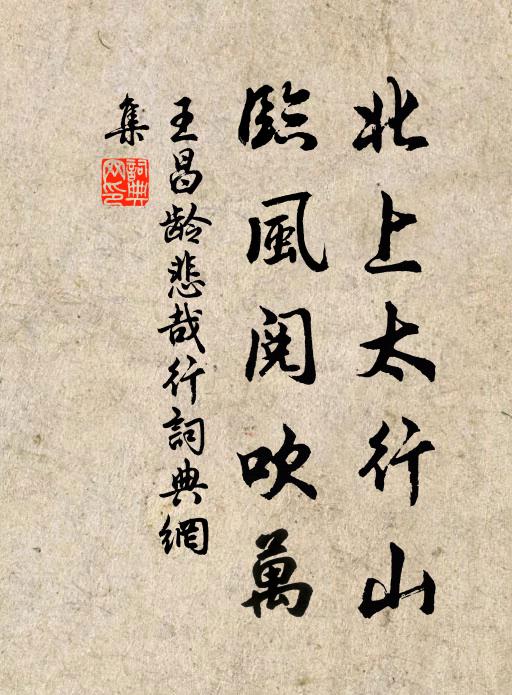 北上太行山
臨風閱吹萬
王昌龄悲哉行詞典網
集
詞典
网印